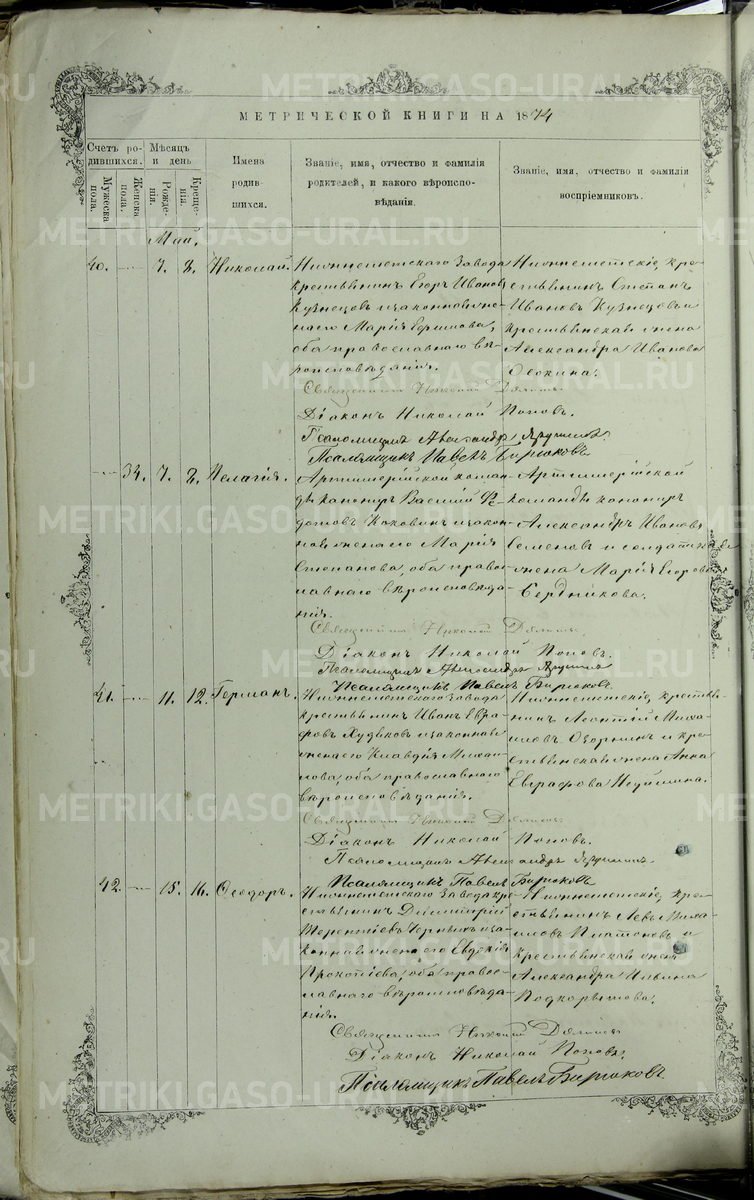 МЕТРИЧЕСКОЙ КНИГИ НА 1874
Счетъ родившихся.
Мужеска пола.
Женска пола.
Мѣсяцъ и день
Рожденія.
Крещенія.
Имена родившихся.
Званіе, имя, отчество и фамилія родителей, и какого вѣроисповѣданія.
Званіе, имя, отчество и фамилія воспріемниковъ.
Май.
40. 7. 8. Николай.
Нижнеисетскаго Завода
крестьянинъ Егоръ Ивановъ
Кузнецовъ и законная же-
на его Марія
оба православнаго вѣ-
роисповѣданія.
Нижнеисетскіе, кре-
стьянинъ Степанъ
Ивановъ Кузнецовъ и
крестьянская жена
Александра Иванова
Священникъ Николай
Діаконъ Николай Поповъ.
Псаломщикъ Александръ
Псаломщикъ Павелъ Бирюковъ
34. 7. 8. Пелагія.
Артиллерійской коман-
ды канониръ Василій Ѳе-
доровъ Коковинъ и закон-
ная жена его Марія
Степанова, оба право-
славнаго вѣроисповѣда-
нія.
Артиллерійской
команды канониръ
Александръ Ивановъ
Семеновъ и солдатская
жена Марія Егорова
Сердникова.
Священникъ Николай
Діаконъ Николай Поповъ.
Псаломщикъ Александръ
Псаломщикъ Павелъ Бирюковъ
41. 11. 12. Германъ.
Нижнеисетскаго Завода
крестьянинъ Иванъ Евгра-
фовъ Худяковъ и законная
жена его Клавдія Михай-
лова, оба православнаго
вѣроисповѣданія.
Нижнеисетскіе, крестья-
нинъ Леонтій Миха-
иловъ Озорнинъ и кре-
стьянская жена Анна
Евграфова Неуймина.
Священникъ Николай
Діаконъ Николай Поповъ.
Псаломщикъ Александръ
Псаломщикъ Павелъ Бирюковъ
42. 15. 16. Ѳеодоръ.
Нижнеисетскаго Завода кре-
стьянинъ Димитрій
Терентіевъ Черныхъ и за-
конная жена его Евдокія
Прокопіева, оба право-
славнаго вѣроисповѣда-
нія.
Нижнеисетскіе, кре-
стьянинъ Левъ Миха-
иловъ Платоновъ и
крестьянская жена
Александра Ильина
Подкорытова.
Священникъ Николай
Діаконъ Николай Поповъ.
Псаломщикъ Павелъ Бирюковъ
METRIKI.GASO-URAL.RU